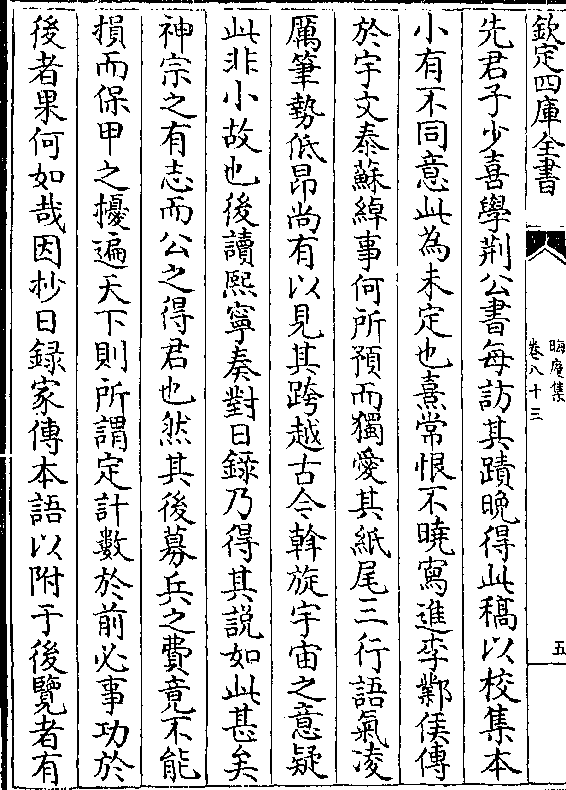 欽定四庫全書
晦庵集
卷八十三
五
先君子少喜學荆公書每訪其蹟晚得此稿以校集本
小有不同意此為未定也熹常恨不曉寫進李鄴侯傳
於宇文泰蘇綽事何所預而獨愛其紙尾三行語氣凌
厲筆勢低昂尚有以見其跨越古今斡旋宇宙之意疑
此非小故也後讀熙寧奏對日錄乃得其說如此甚矣
神宗之有志而公之得君也然其後募兵之費竟不能
損而保甲之擾遍天下則所謂定計數於前必事功於
後者果何如哉因抄日錄家傳本語以附于後覽者有